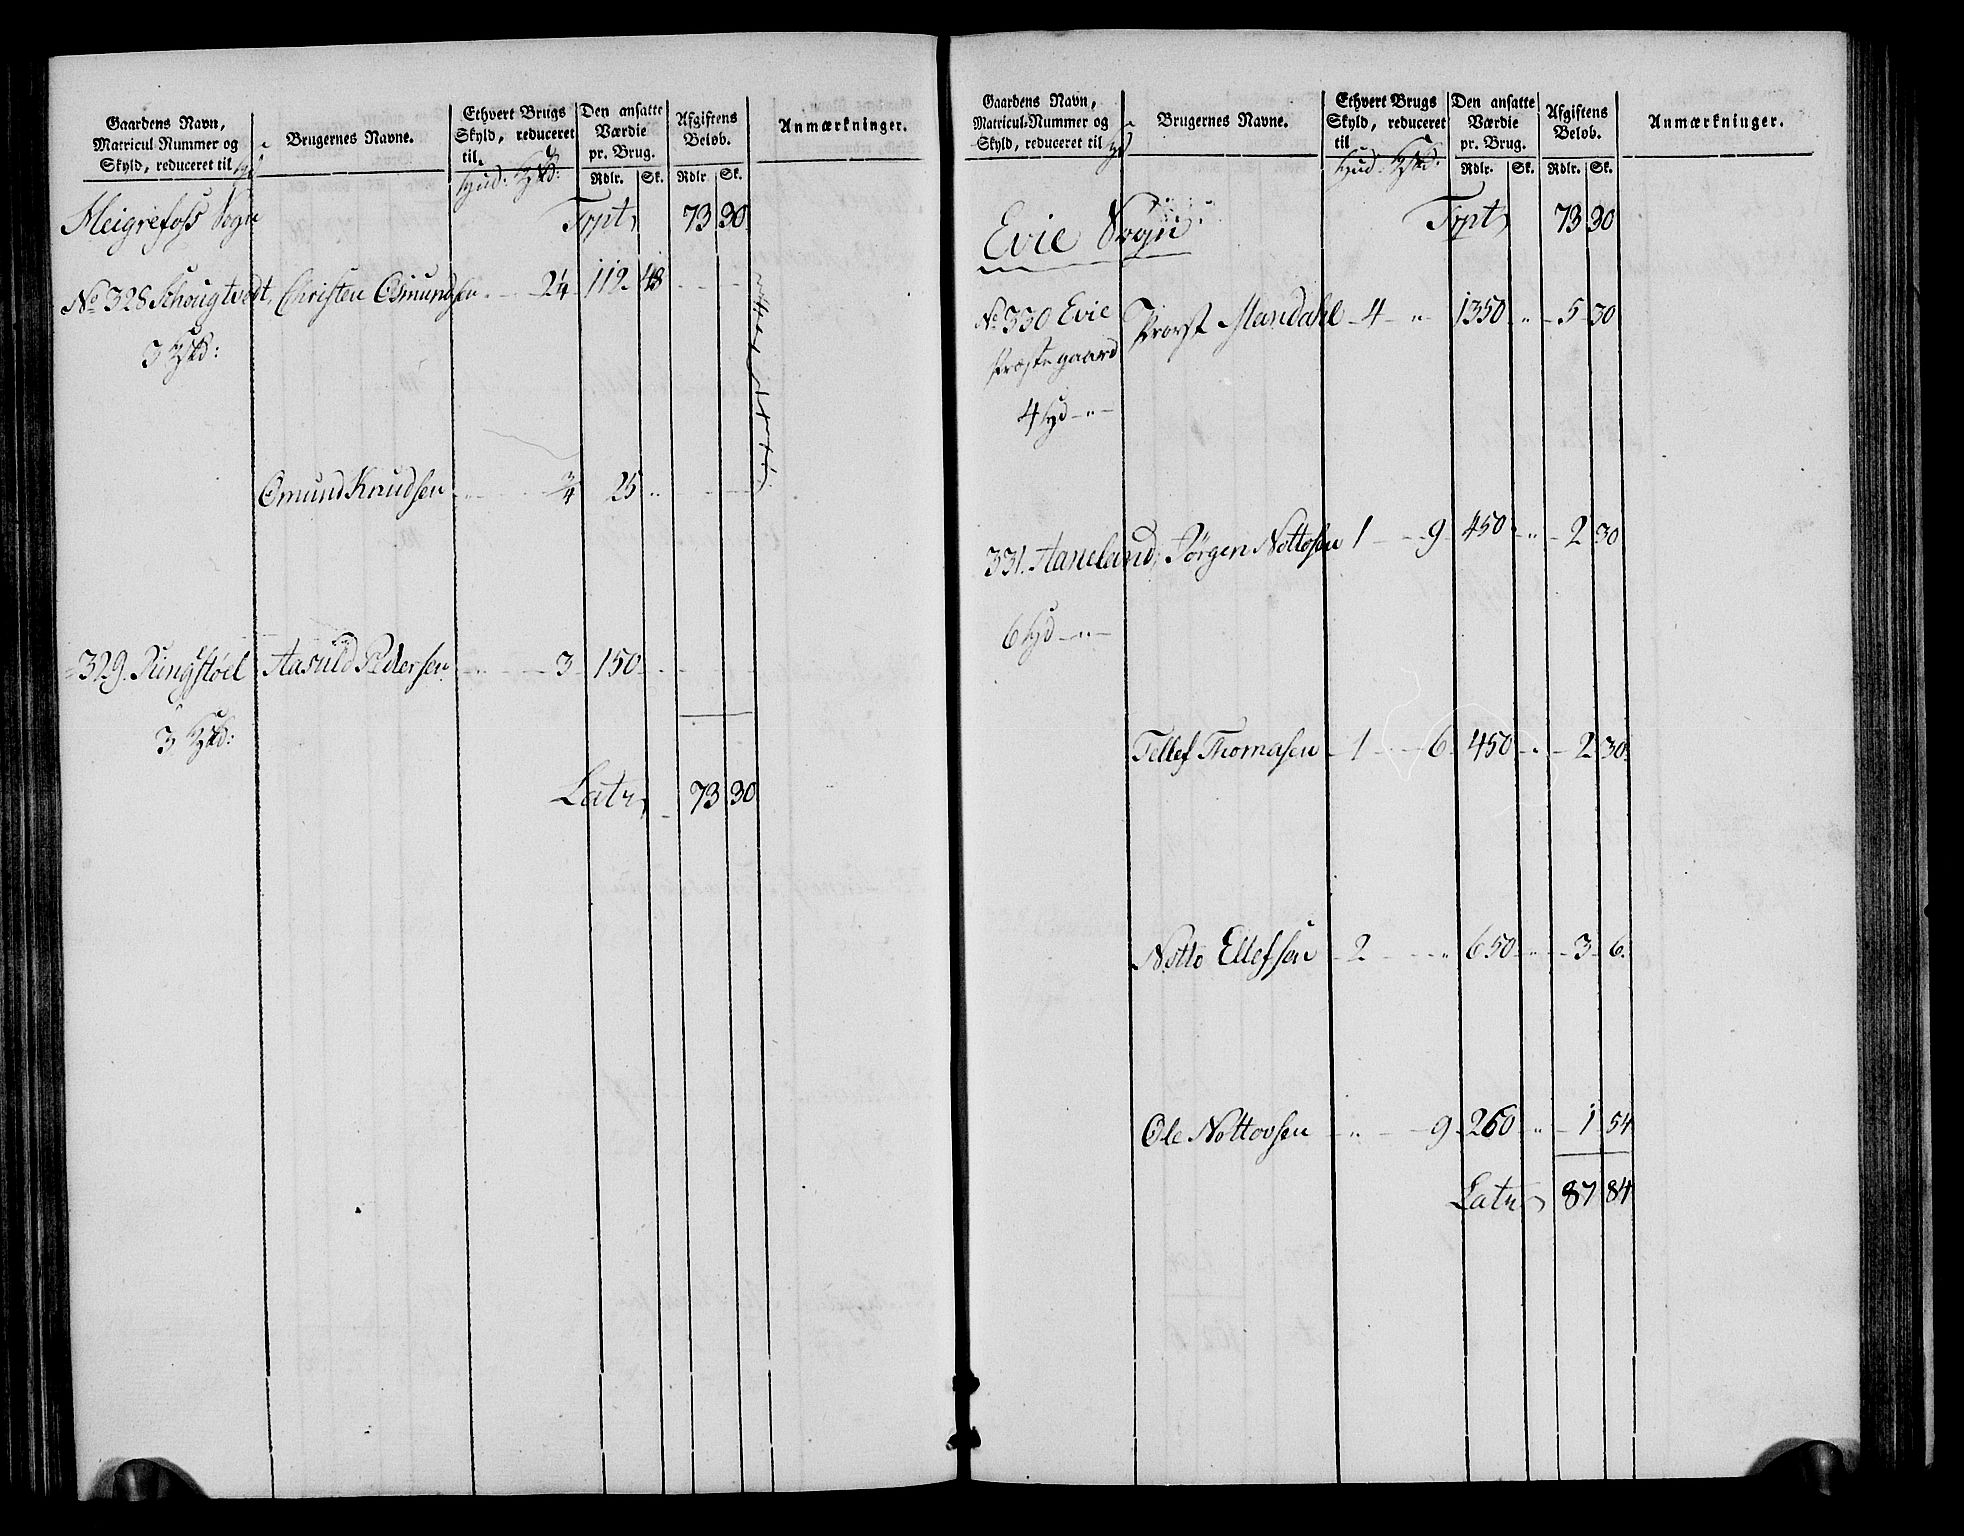 Gaardens Navn,
Matricul-Nummer og
Skyld, reduceret til
Brugernes Navne.
Ethvert Brugs
Skyld, reduceret
til
Hud.
Den ansatte
Værdie
pr. Brug.
Rdlr. Sk.
Afgiftens
Beløb.
Rdlr. Sk.
Anmærkninger.
Heigrefoss Sogn
Trpt 73 30
No 328 Schougtvedt, Christen Osmundsen 2¼ 112 48
3
Omund Knudsen ¾ 25 "
329. Ringstøel Aasuld Pedersen 3 150
3
Latr 73 30
Gaardens Navn,
Matricul-Nummer og
Skyld, reduceret til
Brugernes Navne.
Ethvert Brugs
Skyld, reduceret
til
Hud.
Den ansatte
Værdie
pr. Brug.
Rdlr. Sk.
Afgiftens
Beløb.
Rdlr. Sk.
Anmærkninger.
Evie Sogn
Trpt 73 30
No 330 Evie Provst Mandahl 4 " 1350 " 5 30
Præstegaard
4 Hd "
331. Haneland, Jørgen Nottosen 1 9 450 " 2 30
6 Hd "
Tellef Thomasen 1 6 450 " 2 30
Notto Ellefsen 2 " 650 " 3 6
Ole Nottovsen " 9 260 " 1 54
Latr 87 84